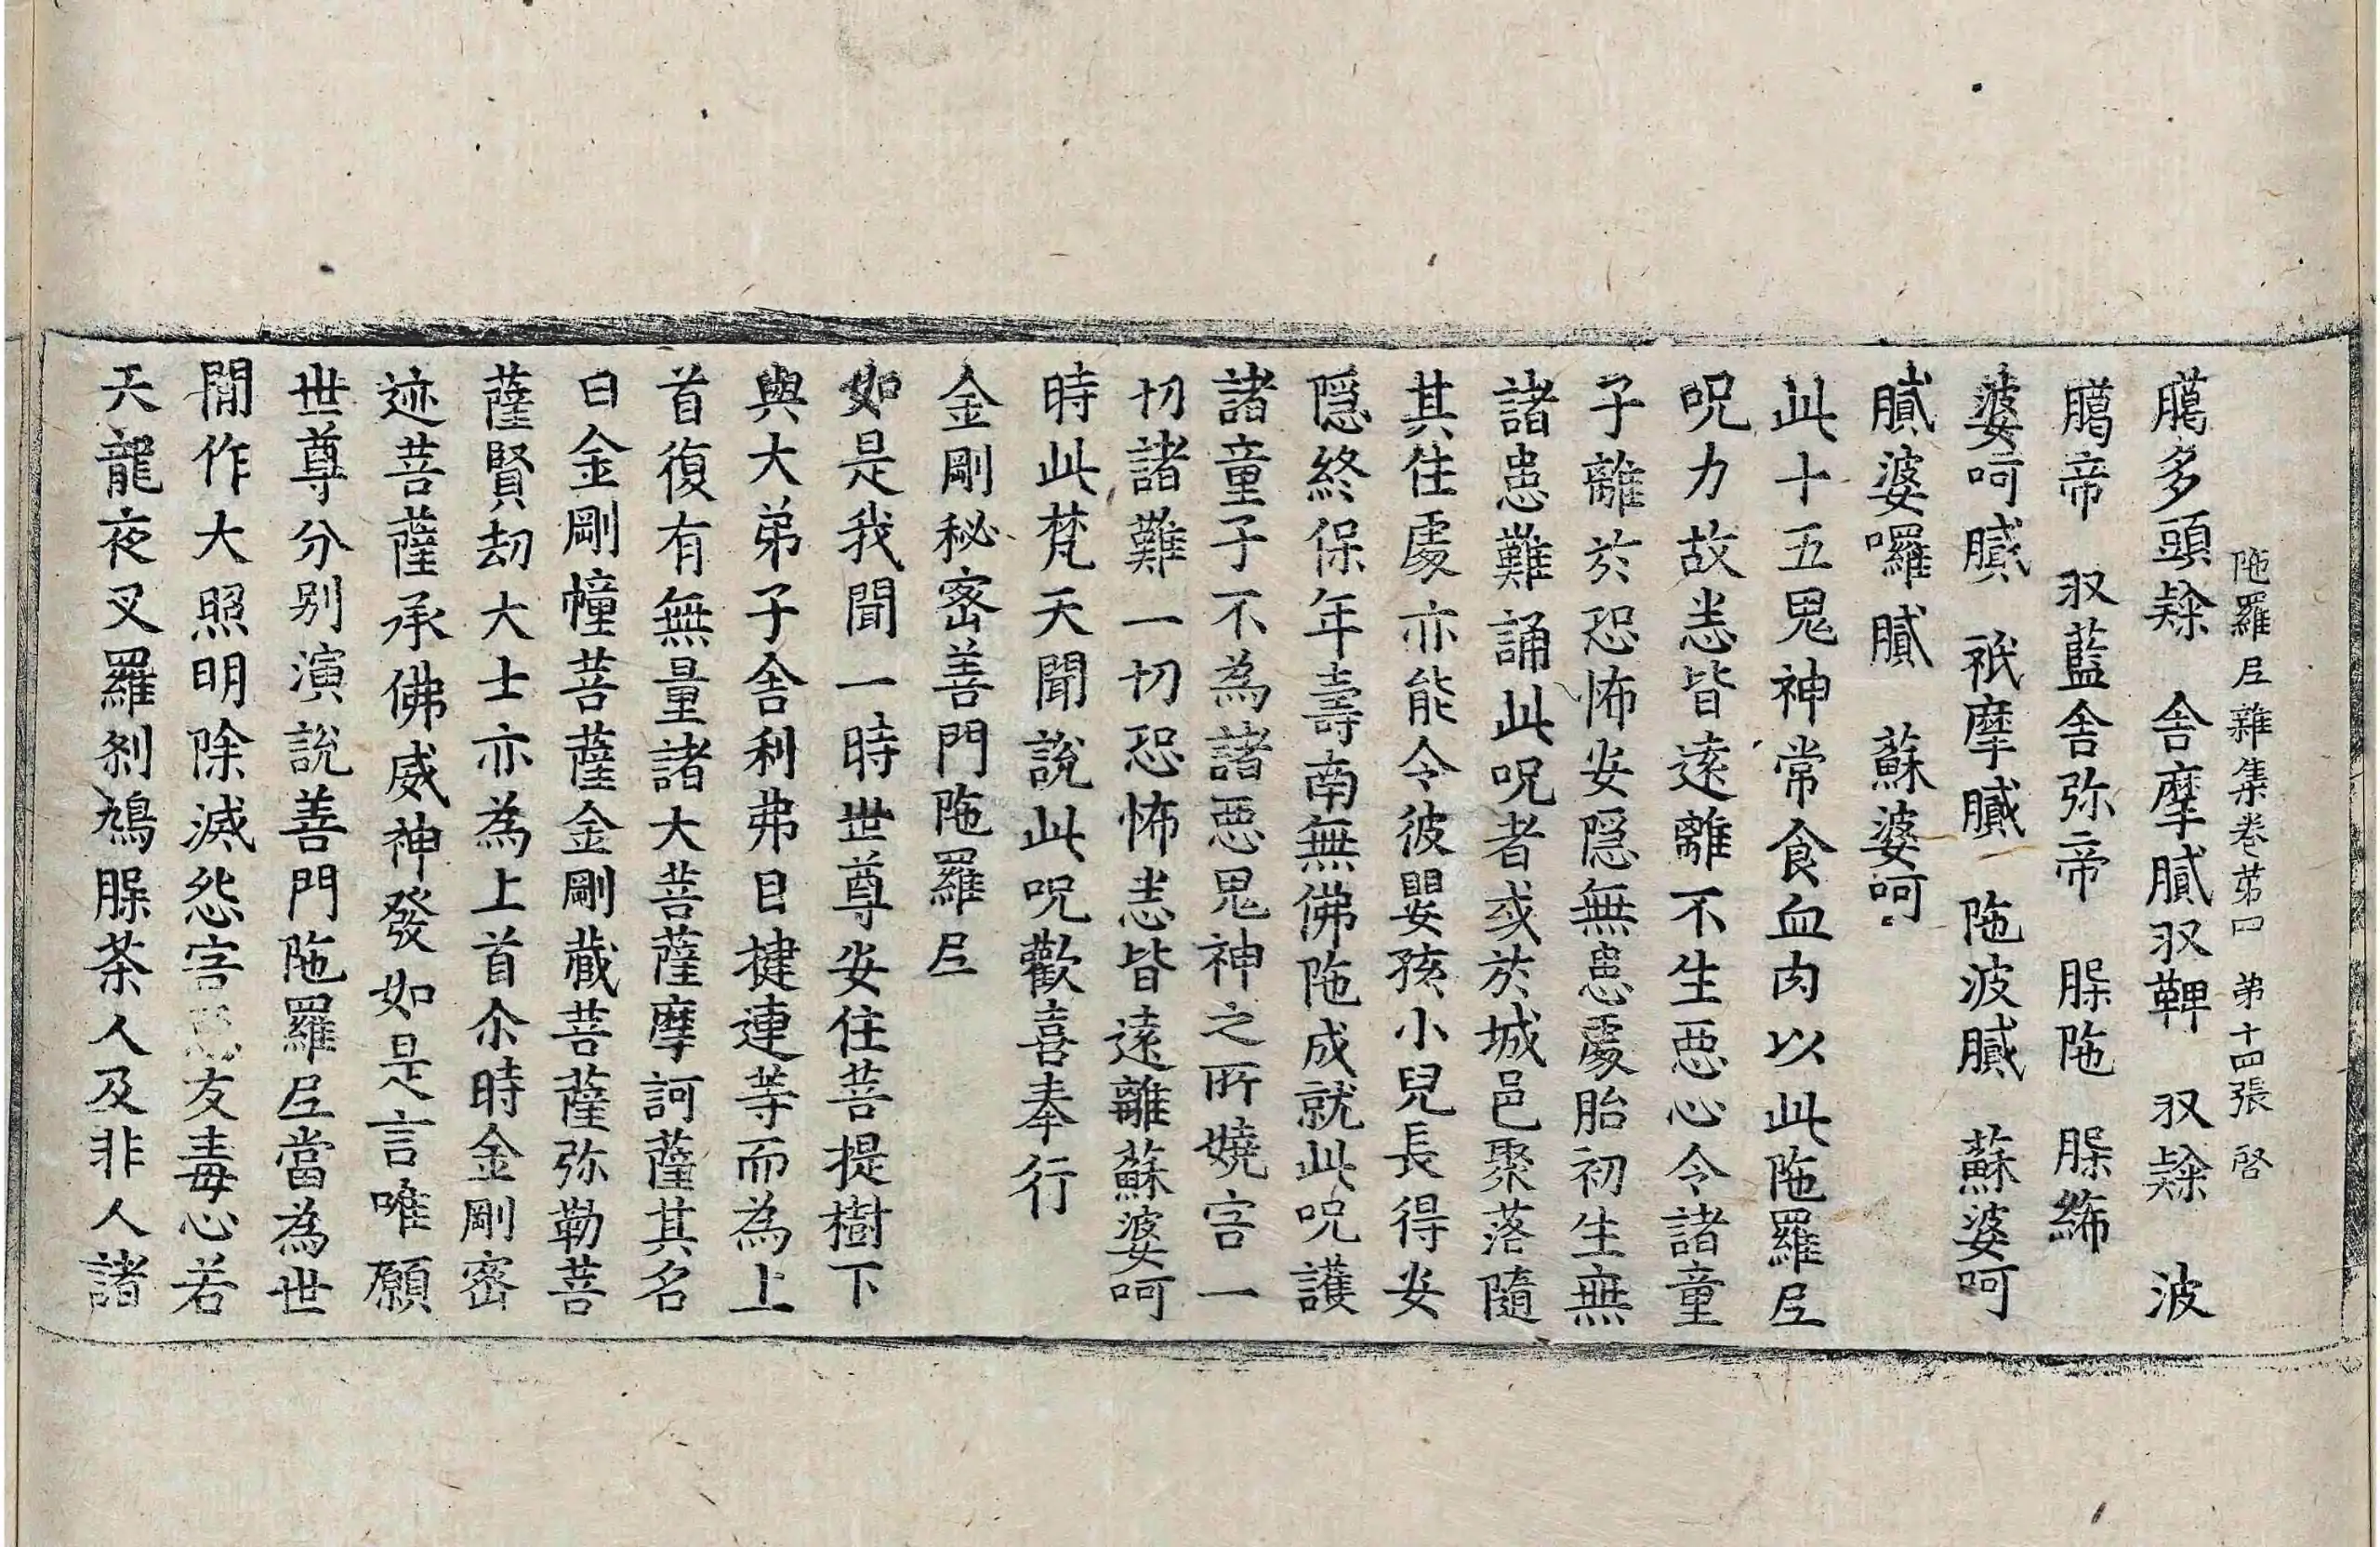 陁羅𡰱雜集卷苐四　苐十四張　啓
臈多頭𨽁　舎摩膩𭛌鞞　𭛌𨽁　波
臈帝　𭛌藍舎弥帝　𦜕陁　𦜕絺
婆呵膩　祇摩膩　陁波膩　蘇婆呵
膩婆囉膩　蘇婆呵
此十五鬼神常食血肉以此陁羅𡰱
呪力故恙皆逺離不生惡心令諸童
子離於恐怖安隱無患處胎初生無
諸患難誦此呪者或於城邑聚落隨
其住處亦能令彼嬰孩小兒長得安
隱終保年壽南無佛陁成就此呪護
諸童子不為諸惡鬼神之所嬈害一
切諸難一切恐怖恙皆逺離蘇婆呵
時此梵天聞說此呪歡喜奉行
金剛秘密善門陁羅𡰱
如是我聞一時世尊安住菩提樹下
與大弟子舎利弗目揵連等而為上
首復有無量諸大菩薩摩訶薩其名
曰金剛幢菩薩金剛藏菩薩弥勒菩
薩賢劫大士亦為上首尒時金剛密
迹菩薩承佛威神發如是言唯願
世尊分別演說善門陁羅𡰱當為世
閒作大照明除滅怨害友毒心若
天龍夜叉羅剎鳩𦜕荼人及非人諸